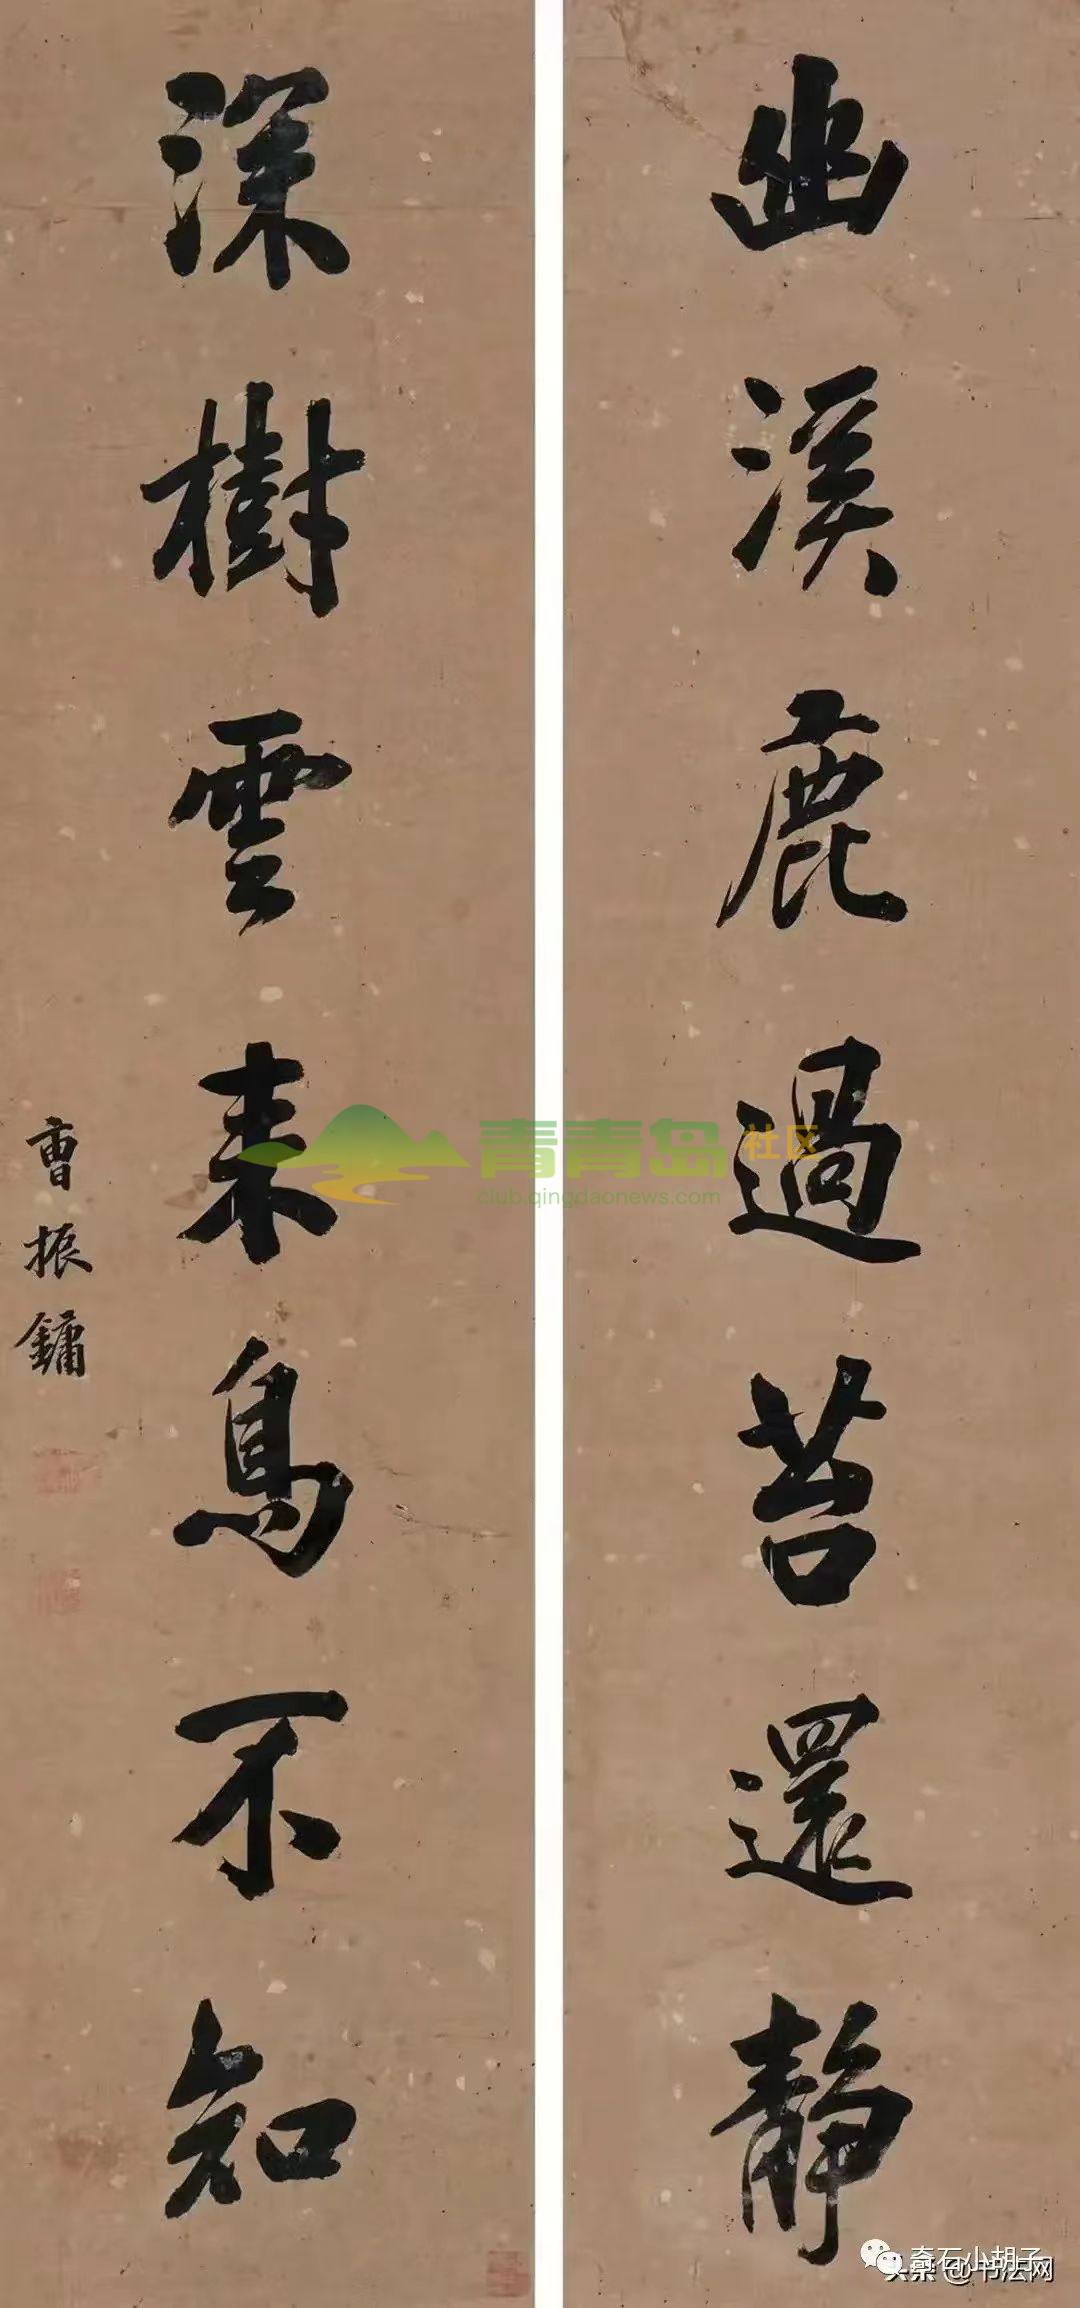 幽溪鹿過苔還靜
深樹雲来鳥不知
曹振鏞
青青岛社区
club.qingdaonews.com
奇石小胡子
头条 @书法网